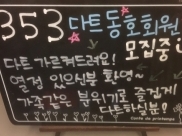 353 다트동호회원
모집중
다트 가르쳐드려요!
열정 있으신분 환영~
가족같은 분위기로 즐겁게
다트하실분!